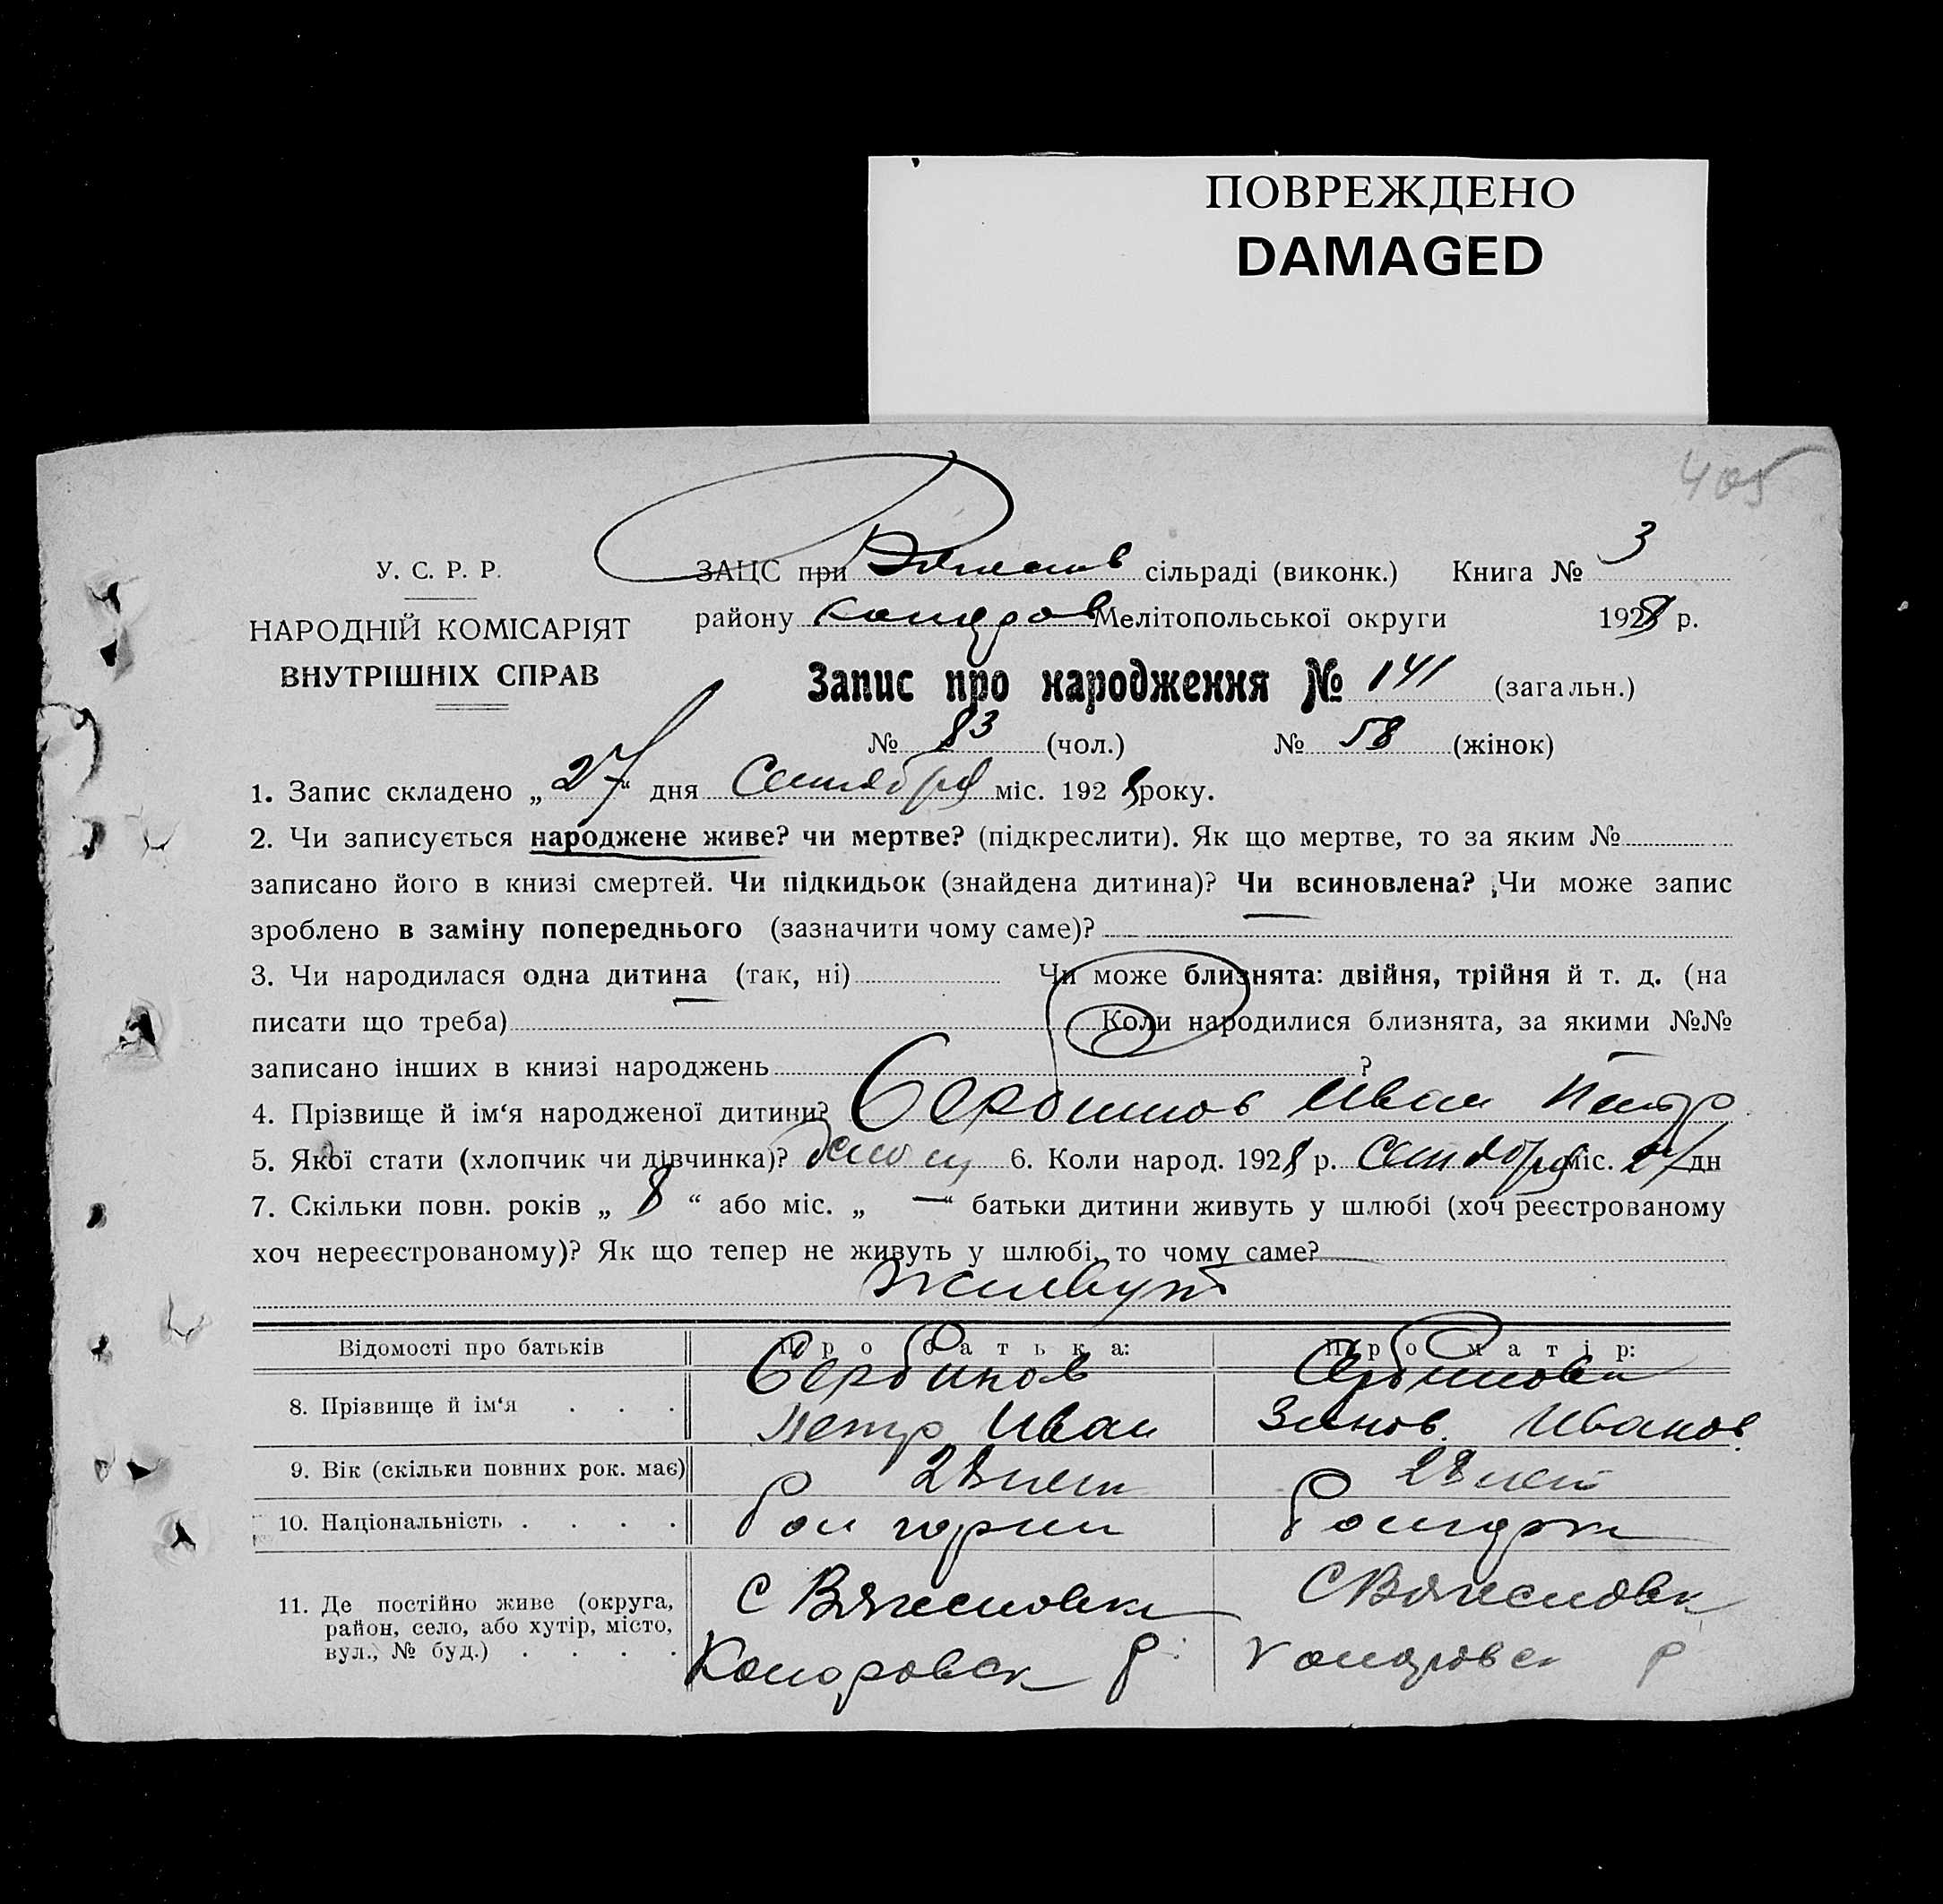 ПОВРЕЖДЕНО
DAMAGED
405
У. С. Р. Р.
НАРОДНІЙ КОМІСАРІЯТ
ВНУТРІШНІХ СПРАВ
ЗАЦС при сільраді (виконк.) Книга № 3
району Мелітопольської округи 1928 р.
Запис про народження № 141 (загальн.)
№ 83 (чол.) № 58 (жінок)
1. Запис складено „27“ дня Сентября міс. 1928 року.
2. Чи записується народжене живе? чи мертве? (підкреслити). Як що мертве, то за яким №
записано його в книзі смертей. Чи підкидьок (знайдена дитина)? Чи всиновлена? Чи може запис
зроблено в заміну попереднього (зазначити чому саме)?
3. Чи народилася одна дитина (так, ні) Чи може близнята: двійня, трійня й т. д. (на
писати що треба) Коли народилися близнята, за якими №№
записано інших в книзі народжень ?
4. Прізвище й ім‘я народженої дитини? Сербинов Иван Петр
5. Якої стати (хлопчик чи дівчинка)? 6. Коли народ. 1928 р. Сентября міс. 27 дн
7. Скільки повн. років „ 8 “ або міс. „ — “ батьки дитини живуть у шлюбі (хоч реєстрованому
хоч нереєстрованому)? Як що тепер не живуть у шлюбі, то чому саме?
Живут
Відомості про батьків Про батька: Про матір:
8. Прізвище й ім‘я . . . Сербинов Петр Иван Сербинова Зинов. Иванов.
9. Вік (скільки повних рок. має) 28 лет 28 лет
10. Національність . . . . Болгарин Болгарка
11. Де постійно живе (округа, район, село, або хутір, місто, вул., № буд.) . . . . С Вячесловка Р С Вячесловка Р